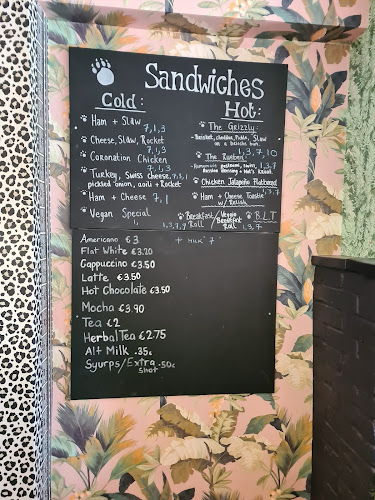 Sandwiches
Cold:
Ham + Slaw
7, 1, 3
Cheese, Slaw, Rocket
7, 1, 3
Coronation Chicken
7, 1, 3
Turkey, Swiss cheese, 7, 3, 1
pickled onion, aioli + Rocket
Ham + Cheese 7, 1
Vegan Special
1,
Hot:
The Grizzly:
- Brisket, cheddar, Pickle, Slaw
on a brioche bun.
1, 3, 7, 10
The Rueben:
Pastrami, Swiss, 1, 3, 7
Russian Dressing + Kraut
Chicken Jalapeño Flatbread
1, 3, 7
Ham + Cheese Toastie
w/ Relish
Breakfast Roll
1, 3, 7
Veggie Breakfast Roll
B.L.T
1, 3, 7
Americano €3 + milk 7
Flat White €3.20
Cappuccino €3.50
Latte €3.50
Hot Chocolate €3.50
Mocha €3.90
Tea €2
Herbal Tea €2.75
Alt Milk .35c
Syurps/Extra Shot .50c